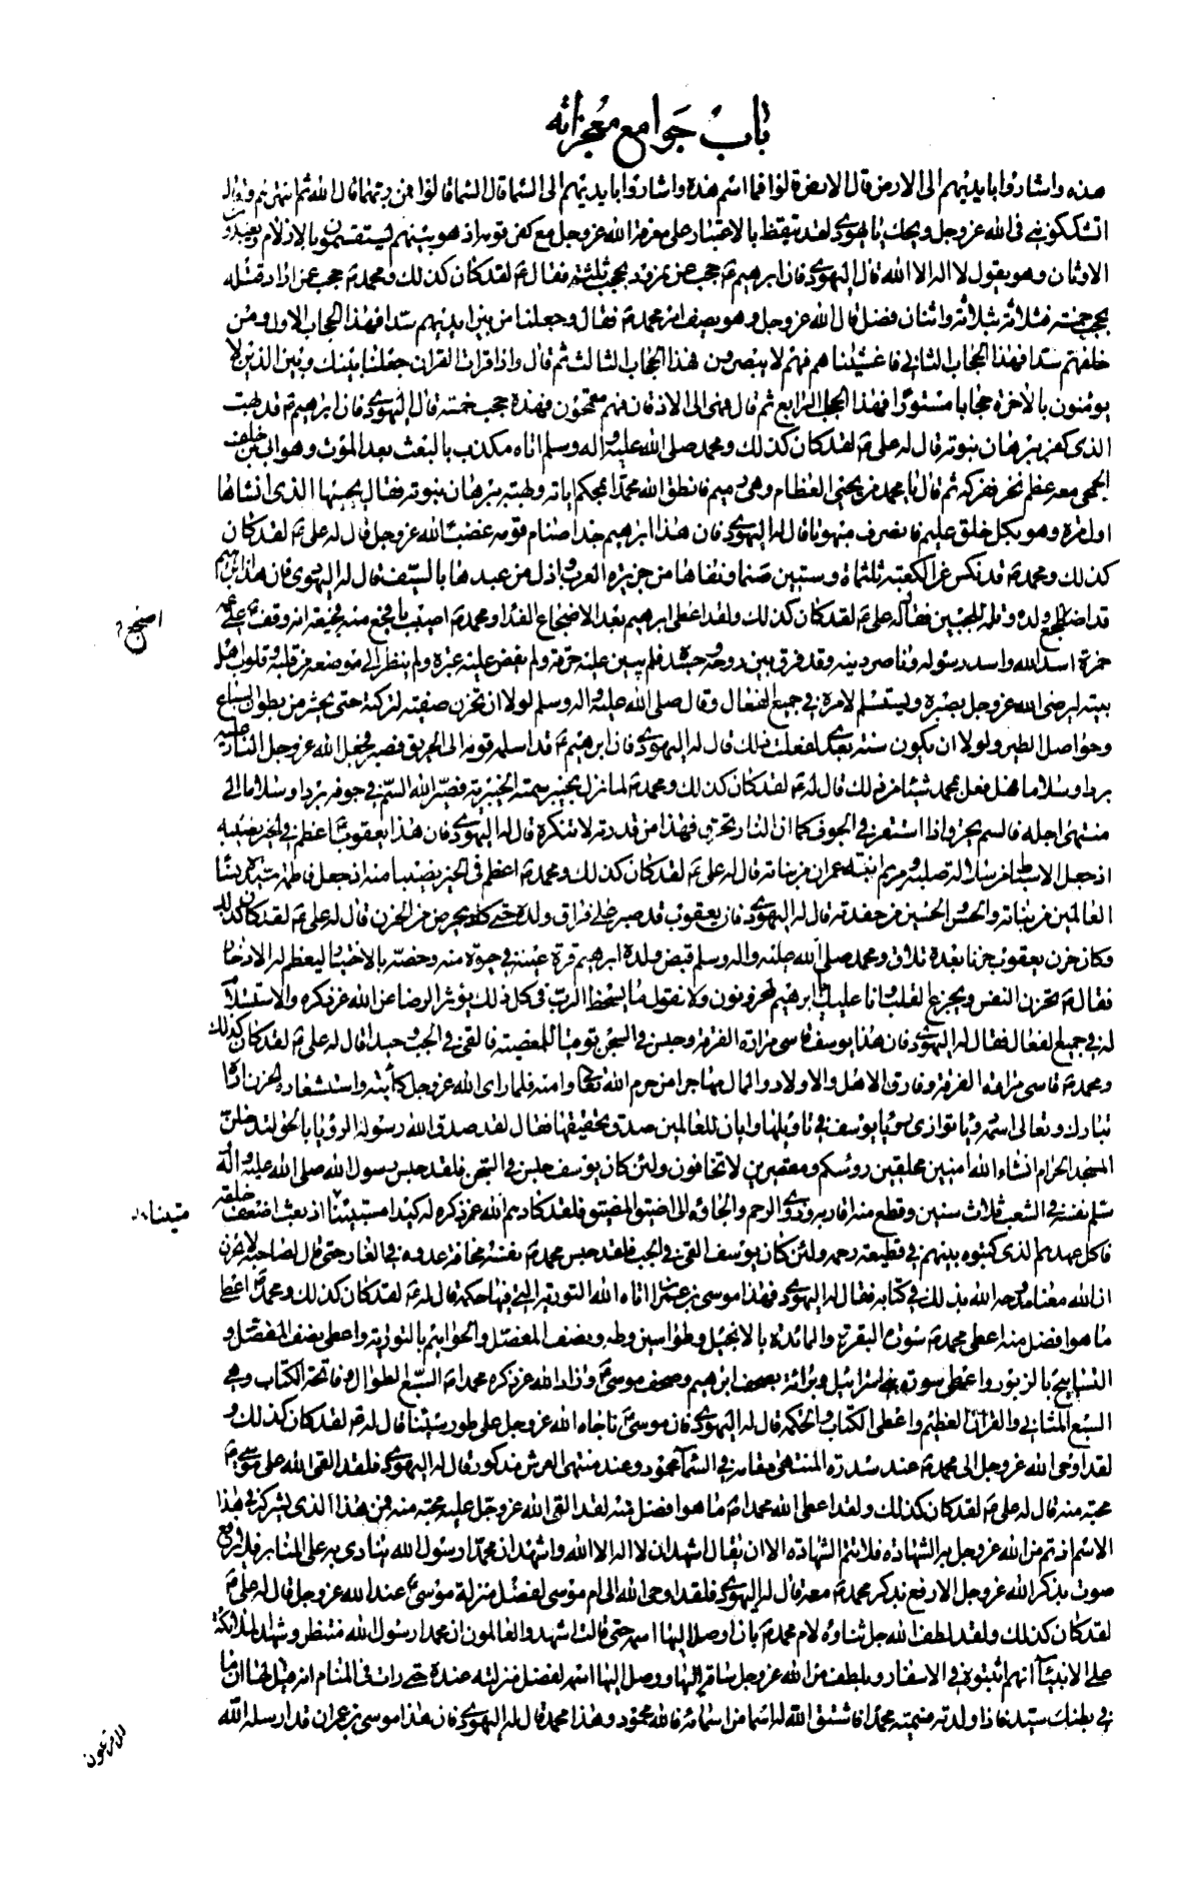 باب جوامع معجزاته
هذه واشاروا بايديهم الى الارض قال الارض قالوا فما اسم هذه واشاروا بايديهم الى السماء قال السماء قالوا فمن ربهما قال الله ثم انتهرهم وقال
اتشككوني في الله عز وجل ويحك يا يهودي لقد تيقظ بالاعتبار على معرفة الله عز وجل مع كفر قومه اذ هو بينهم يستقسمون بالازلام ويعبدون
الاوثان وهو يقول لا اله الا الله قال اليهودي فان ابرهيم ع حجب عن نمرود بحجب ثلثة فقال ع لقد كان كذلك ومحمد ص حجب عمن اراد قتله
بحجب خمسة فثلاثة بثلاثة واثنان فضل قال الله عز وجل وهو يصف امر محمد ص فقال وجعلنا من بين ايديهم سدا فهذا الحجاب الاول ومن
خلفهم سدا فهذا الحجاب الثاني فاغشيناهم فهم لا يبصرون هذا الحجاب الثالث ثم قال واذا قرات القران جعلنا بينك وبين الذين لا
يومنون بالاخرة حجابا مستورا فهذا الحجاب الرابع ثم قال فهي الى الاذقان فهم مقمحون فهذه حجب خمسة قال اليهودي فان ابرهيم ع قد بهت
الذي كفر ببرهان نبوته قال له علي ع لقد كان كذلك ومحمد صلى الله عليه واله وسلم اتاه مكذب بالبعث بعد الموت وهو ابي بن خلف
الجمحي معه عظم نخر ففركه ثم قال يا محمد من يحيي العظام وهي رميم فانطق الله محمدا بمحكم اياته وبهته ببرهان نبوته فقال يحييها الذي انشاها
اول مرة وهو بكل خلق عليم فانصرف مبهوتا قال له اليهودي فان هذا ابرهيم جذ اصنام قومه غضبا لله عز وجل قال له علي ع لقد كان
كذلك ومحمد ص قد نكس عن الكعبة ثلثماة وستين صنما ونفاها من جزيرة العرب واذل من عبدها بالسيف قال له اليهودي فان هذا ابرهيم
قد اضجع ولده وتله للجبين فقال له علي ع لقد كان كذلك ولقد اعطى ابرهيم بعد الاضجاع الفداء ومحمد ص اصيب بافجع منه فجيعة انه وقف على عمه
حمزة اسد الله واسد رسوله وناصر دينه وقد فرق بين روحه وجسده فلم يبين عليه حرقة ولم يفض عليه عبرة ولم ينظر الى موضعه من قلبه وقلوب اهل
بيته ليرضى الله عز وجل بصبره ويستسلم لامره في جميع الفعال وقال صلى الله عليه واله وسلم لولا ان تحزن صفية لتركته حتى يحشر من بطون السباع
وحواصل الطير ولولا ان يكون سنة بعدي لفعلت ذلك قال له اليهودي فان ابرهيم ع قد اسلمه قومه الى الحريق فصبر فجعل الله عز وجل النار عليه
بردا وسلاما فهل فعل بمحمد شيئا من ذلك قال له ع لقد كان كذلك ومحمد ص لما نزل بخيبر سمته الخيبرية فصير الله السم في جوفه بردا وسلاما الى
منتهى اجله فالسم يحرق اذا استقر في الجوف كما ان النار تحرق فهذا من قدرته لا تنكره قال له اليهودي فان هذا يعقوب ع اعظم في الخير نصيبه
اذ جعل الاسباط من سلالة صلبه ومريم ابنة عمران من بناته قال له علي ع لقد كان كذلك ومحمد ص اعظم في الخير نصيبا منه اذ جعل فاطمة سيدة نساء
العالمين من بناته والحسن والحسين من حفدته قال له اليهودي فان يعقوب قد صبر على فراق ولده حتى كاد يحرض من الحزن قال له علي ع لقد كان كذلك
وكان حزن يعقوب حزنا بعده تلاق ومحمد صلى الله عليه واله وسلم قبض ولده ابرهيم قرة عينه في حيوة منه وخصه بالاختبار ليعظم له الادخار
فقال ص تحزن النفس ويجزع القلب وانا عليك يا ابرهيم لمحزونون ولا نقول ما يسخط الرب في كل ذلك يؤثر الرضا عن الله عز ذكره والاستسلام
له في جميع الفعال فقال له اليهودي فان هذا يوسف قاسى مرارة الفرقة وحبس في السجن توقيا للمعصية فالقي في الجب وحيدا قال له علي ع لقد كان كذلك
ومحمد ص قاسى مرارة الغربة وفارق الاهل والاولاد والمال مهاجرا من حرم الله تعالى وامنه فلما راى الله عز وجل كابته واستشعاره الحزن اراه
تبارك وتعالى اسمه رؤيا توازي رؤيا يوسف في تاويلها وابان للعالمين صدق تحقيقها فقال لقد صدق الله رسوله الرؤيا بالحق لتدخلن
المسجد الحرام انشاء الله امنين محلقين رؤسكم ومقصرين لا تخافون ولئن كان يوسف حبس في السجن فلقد حبس رسول الله صلى الله عليه واله
سلم نفسه في الشعب ثلاث سنين وقطع منه اقاربه وذوي الرحم والجاؤه الى اضيق المضيق فلقد كادهم الله عز ذكره له كيدا مستبينا اذ بعث اضعف خلقه
فاكل عهدهم الذي كتبوه بينهم في قطيعة رحمه ولئن كان يوسف القي في الجب فلقد حبس محمد ص نفسه مخافة عدوه في الغار حتى قال لصاحبه لا تحزن
ان الله معنا ومدحه الله بذلك في كتابه فقال له اليهودي فهذا موسى بن عمران اتاه الله التورية التي فيها حكمه قال له ع لقد كان كذلك ومحمد ص اعطي
ما هو افضل منه اعطي محمد ص سورة البقرة والمائدة بالانجيل وطواسين وطه ونصف المفصل والحواميم بالتورية واعطي نصف المفصل و
التسابيح بالزبور واعطي سورة بني اسرائيل وبرائة بصحف ابرهيم وصحف موسى ع وزاد الله عز ذكره محمدا ص السبع الطوال وفاتحة الكتاب وهي
السبع المثاني والقران العظيم واعطي الكتاب والحكمة قال له اليهودي فان موسى ع ناجاه الله عز وجل على طور سينا قال له ع لقد كان كذلك و
لقد اوحى الله عز وجل الى محمد ص عند سدرة المنتهى فمقامه في السماء محمود وعند منتهى العرش مذكور قال له اليهودي فلقد القى الله على موسى ع
محبة منه قال له علي ع لقد كان كذلك ولقد اعطى الله محمدا ص ما هو افضل منه لقد القى الله عز وجل عليه محبة منه فمن هذا الذي يشركه في هذا
الاسم اذ تم من الله عز وجل به الشهادة فلا تتم الشهادة الا ان يقال اشهد ان لا اله الا الله واشهد ان محمدا رسول الله ينادى به على المنابر فلا يرفع
صوت بذكر الله عز وجل الا رفع بذكر محمد ص معه قال له اليهودي فلقد اوحى الله الى ام موسى لفضل منزلة موسى ع عند الله عز وجل قال له علي ع
لقد كان كذلك ولقد لطف الله جل ثناؤه لام محمد ص بان اوصل اليها اسمه حتى قالت اشهد والعالمون ان محمدا رسول الله منتظر وشهد الملائكة
على الانبياء انهم اثبتوه في الاسفار وبلطف من الله عز وجل ساقه اليها ووصل اليها اسمه لفضل منزلته عنده حتى رات في المنام انه قيل لها ان ما
في بطنك سيد فاذا ولدته فسميه محمدا فاشتق الله له اسما من اسمائه فالله محمود وهذا محمد قال له اليهودي فان هذا موسى بن عمران قد ارسله الله
اضجع
متينا
الى فرعون